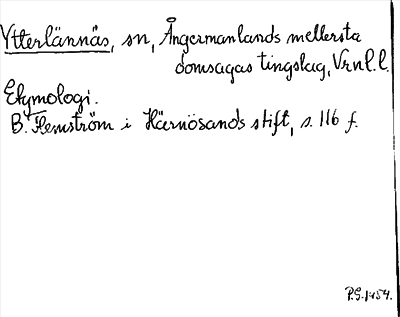 Ytterlännäs, sn, Ångermanlands mellersta
domsagas tingslag, Vrnl. l.
Etymologi.
B. Flemström i Härnösands stift, s. 116 f.
P.G. 1454.